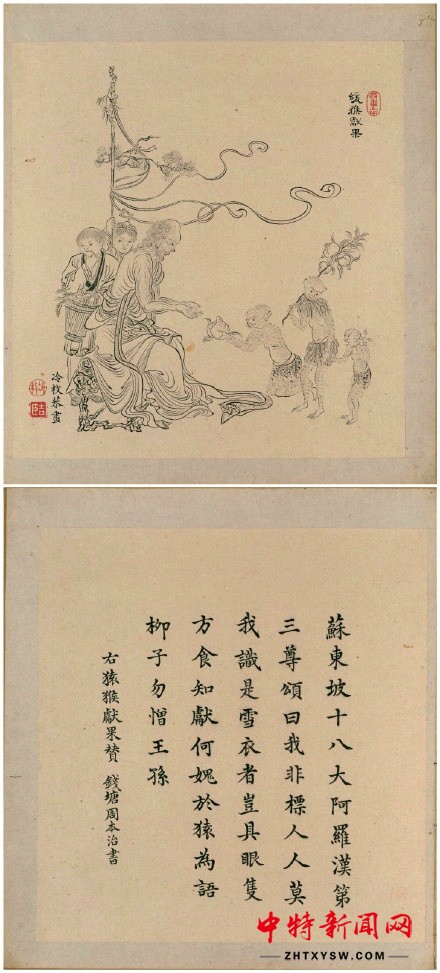 猿猴獻果
冷枚恭畫
蘇東坡十八大阿羅漢第
三尊頌曰我非標人人莫
我識是雪衣者豈具眼隻
方食知獻何媿於猿為語
栁子勿憎王孫
右猿猴獻果賛 錢塘周本治書
中特新闻网
ZHTXYSW.COM